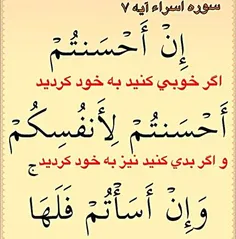 سوره اسراء آیه ۷
إِنْ أَحْسَنتُمْ
اگر خوبي کنید به خود کردید
أَحْسَنتُمْ لِأَنفُسِكُمْ ۖ
و اگر بدي کنید نیز به خود کردید ج
وَإِنْ أَسَأْتُمْ فَلَهَا